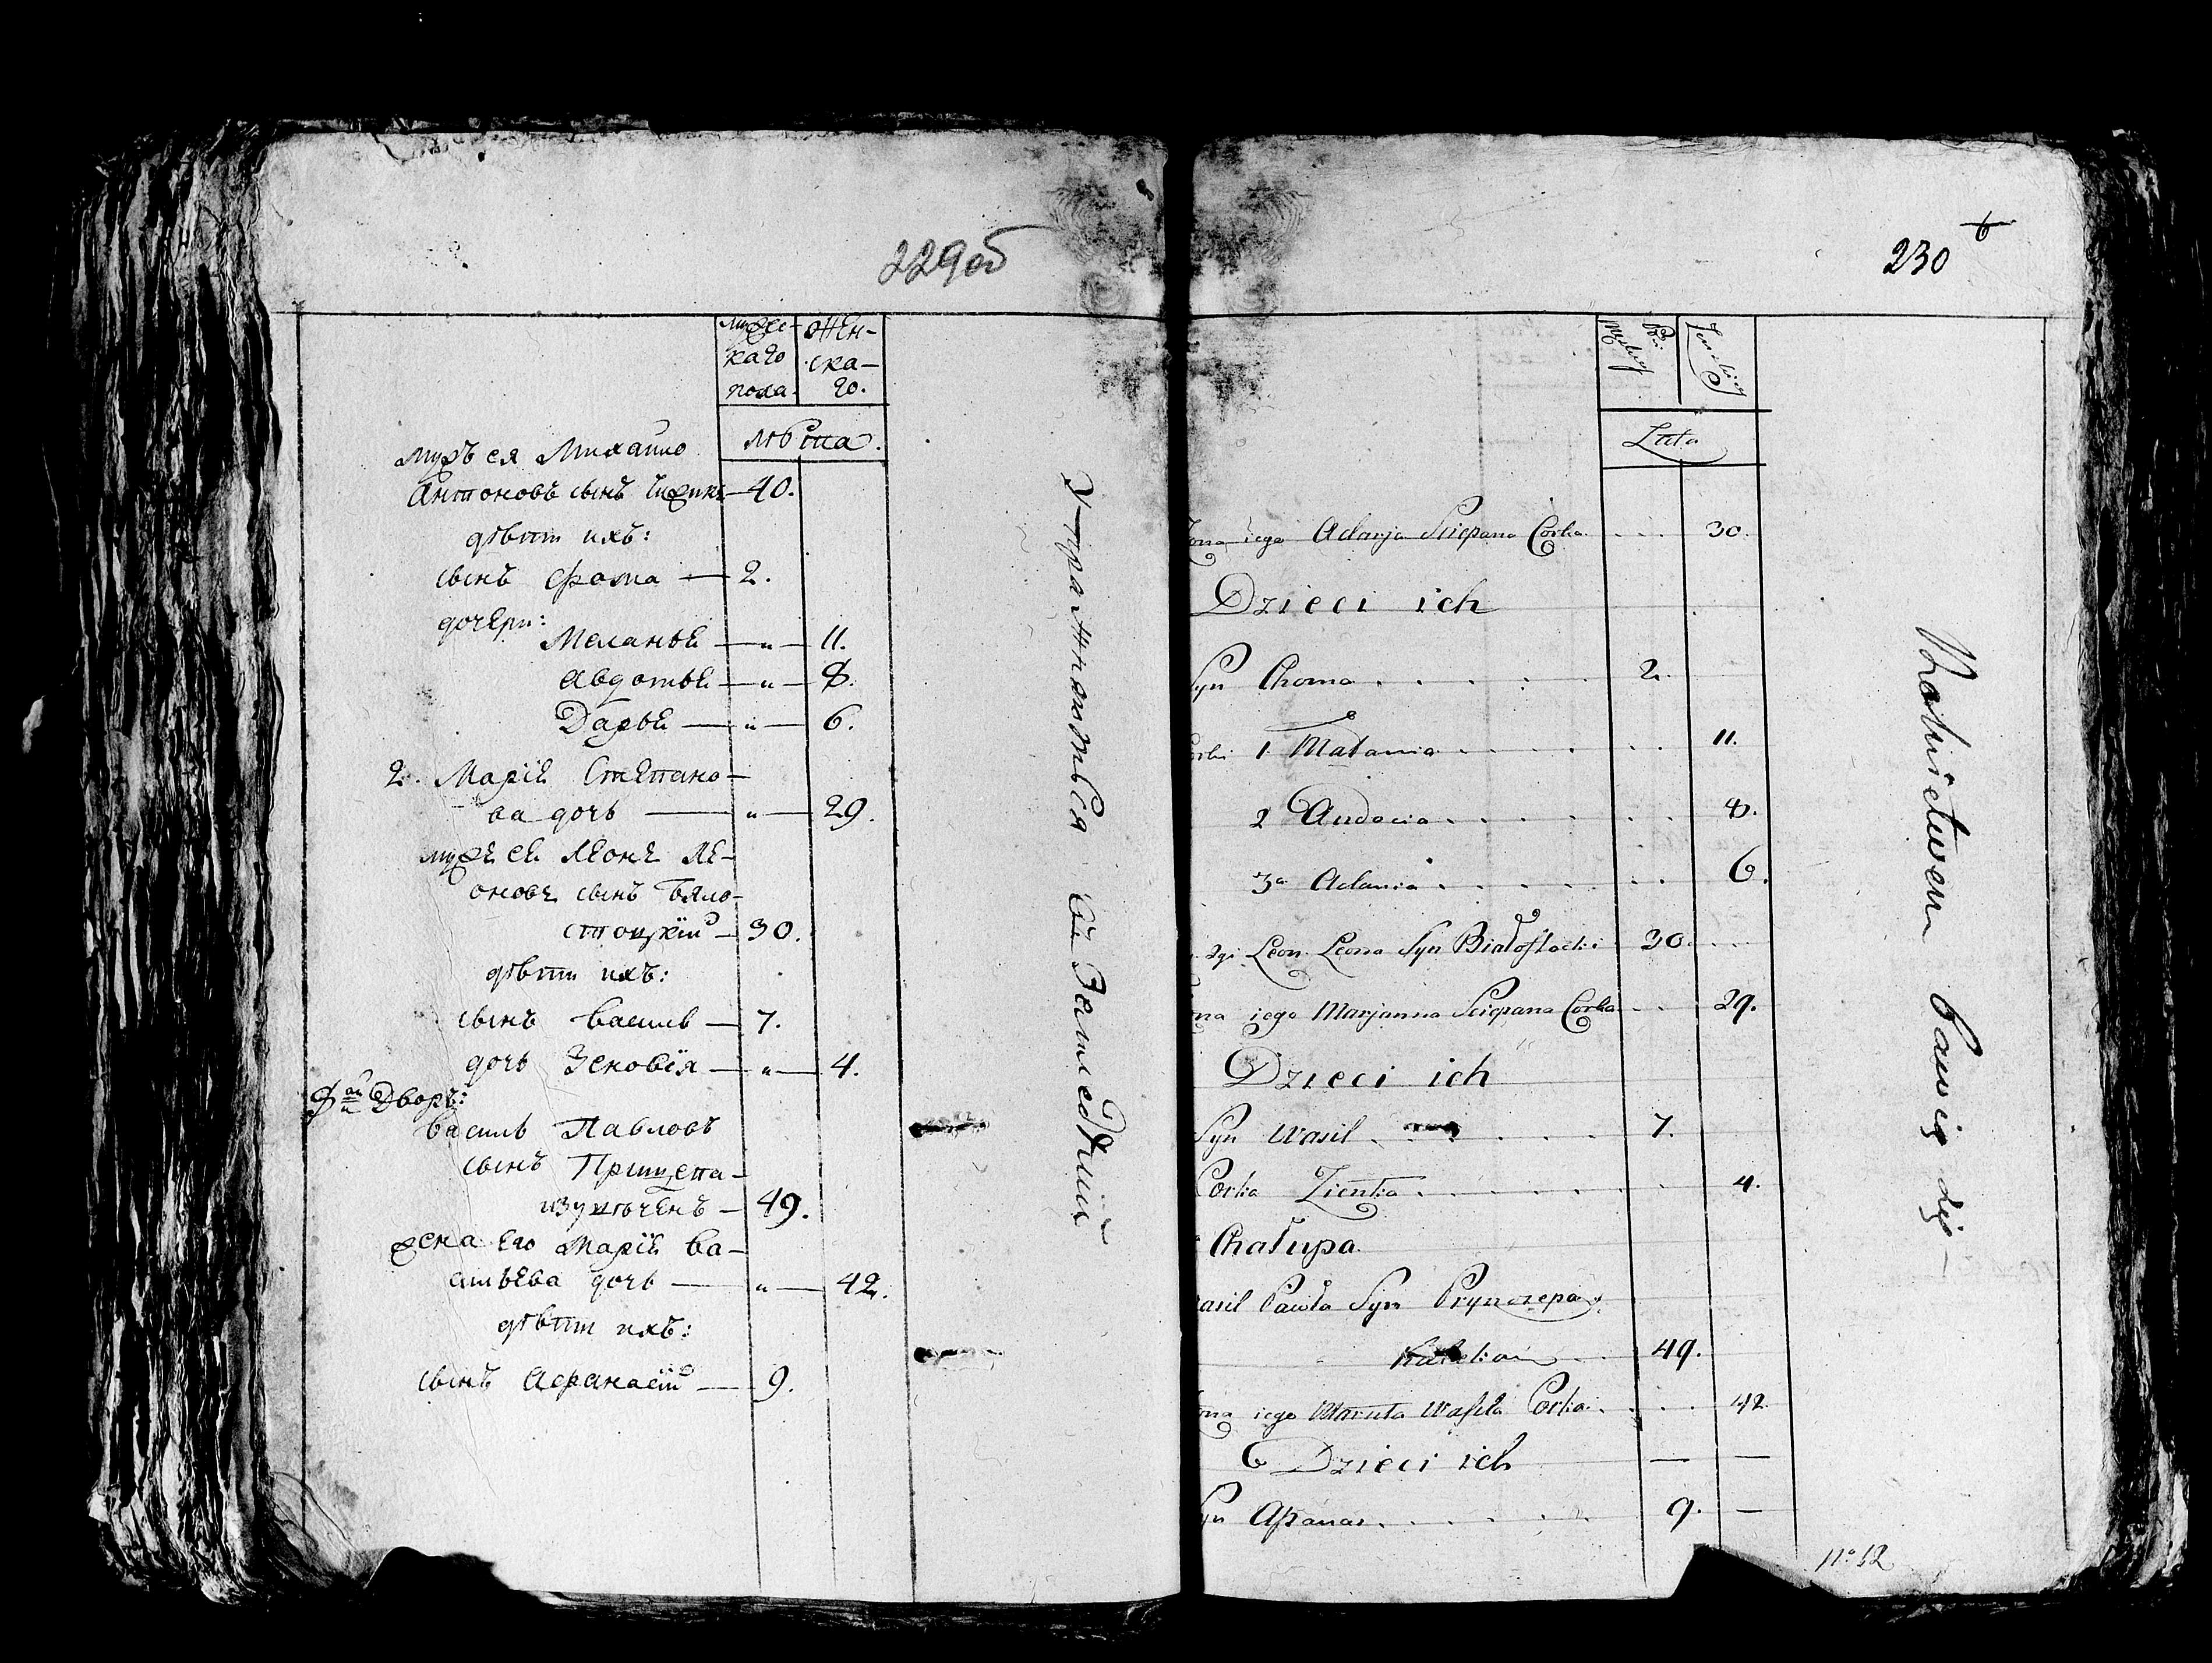 229об
мужс-
каго
пола.
жен-
ска-
го.
лѣта.
мужъ ея Михаило
Антоновъ сынъ — 40.
дѣти ихъ:
сынъ Фома — 2.
дочери:
Меланье — „ — 11.
Авдотье — „ — 8.
Дарье — „ — 6.
2. Маріе Степано-
ва дочь — „ — 29.
муже ее Леоне Ле-
оновъ сынъ Бяло-
стоцкій — 30.
дѣти ихъ:
сынъ Василь — 7.
дочь Зеновія — „ — 4.
Дворъ:
Василь Павловъ
сынъ Прищепа-
изувѣченъ — 49.
жена его Маріе Ва-
сильева дочь — „ — 42.
дѣти ихъ:
сынъ Афанасій — 9.
Упражняются въ Земледѣліи
230
6
Męskiey
Płci
Żenskiey
Lata
Zona iego Adarja Sciepana Corka . . . 30.
Dzieci ich
Syn Choma . . . . . 2.
Corki 1. Małania . . . . . 11.
2 Audocia . . . . . 8.
3a Adaria . . . . . 6.
2gi Leon Leona Syn Białostocki 30. . .
Zona iego Marjanna Sciepana Corka . . 29.
Dzieci ich
Syn Wasil . . . . . 7.
Corka Zienka . . . . . 4.
Chałupa
Wasil Pawła Syn Prynczepa
Kaleka 49.
Zona iego Maruta Wasila Corka . . . 42.
6 Dzieci ich — —
Syn Apanas . . . . . 9. —
Rolnictwem bawią się —
No 12